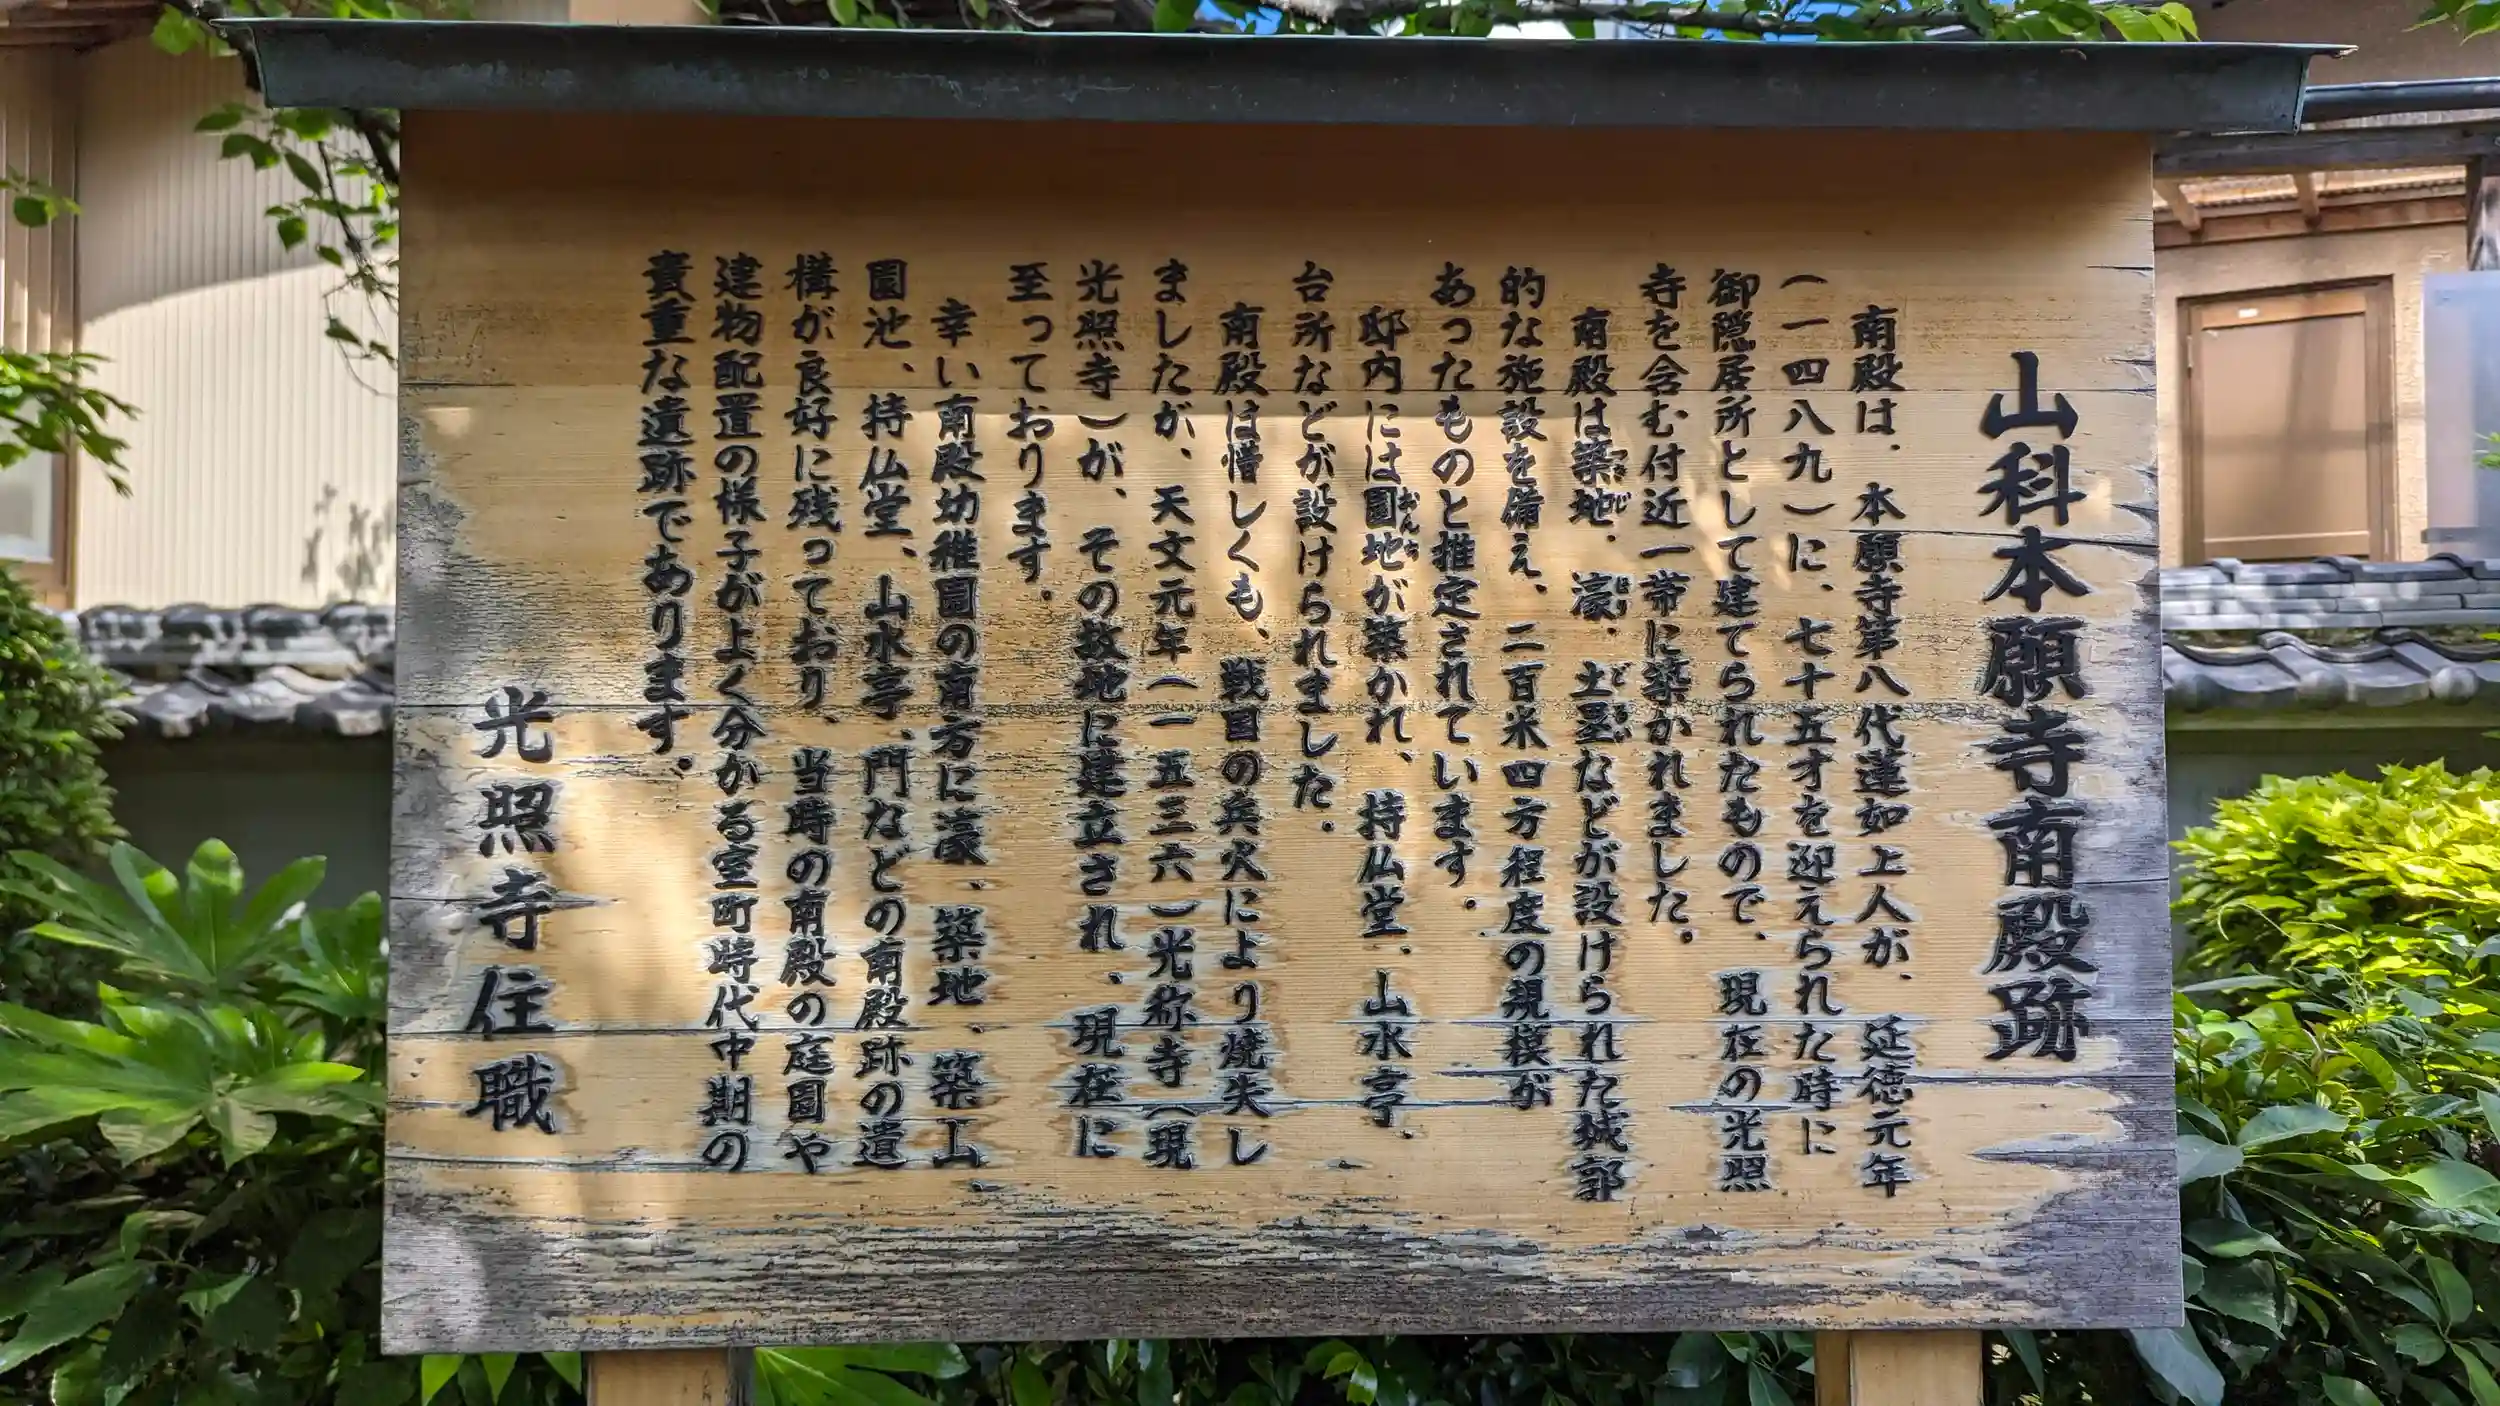 山科本願寺南殿跡
南殿は、本願寺第八代蓮如上人が、延徳元年
(一四八九)に、七十五才を迎えられた時に
御隠居所として建てられたもので、現在の光照
寺を含む付近一帯に築かれました。
南殿は築地、濠、土塁などが設けられた城郭
ついじ ほり どるい
的な施設を備え、二百米四方程度の規模が
あったものと推定されています。
邸内には園地が築かれ、持仏堂、山水亭、
おんち
台所などが設けられました。
南殿は惜しくも、戦国の兵火により焼失し
ましたが、天文元年(一五三六)光称寺(現
光照寺)が、その故地に建立され、現在に
至っております。
幸い南殿幼稚園の南方に濠、築地、築山、
園池、持仏堂、山水亭、門などの南殿跡の遺
構が良好に残っており、当時の南殿の庭園や
建物配置の様子がよく分かる室町時代中期の
貴重な遺跡であります。
光照寺住職